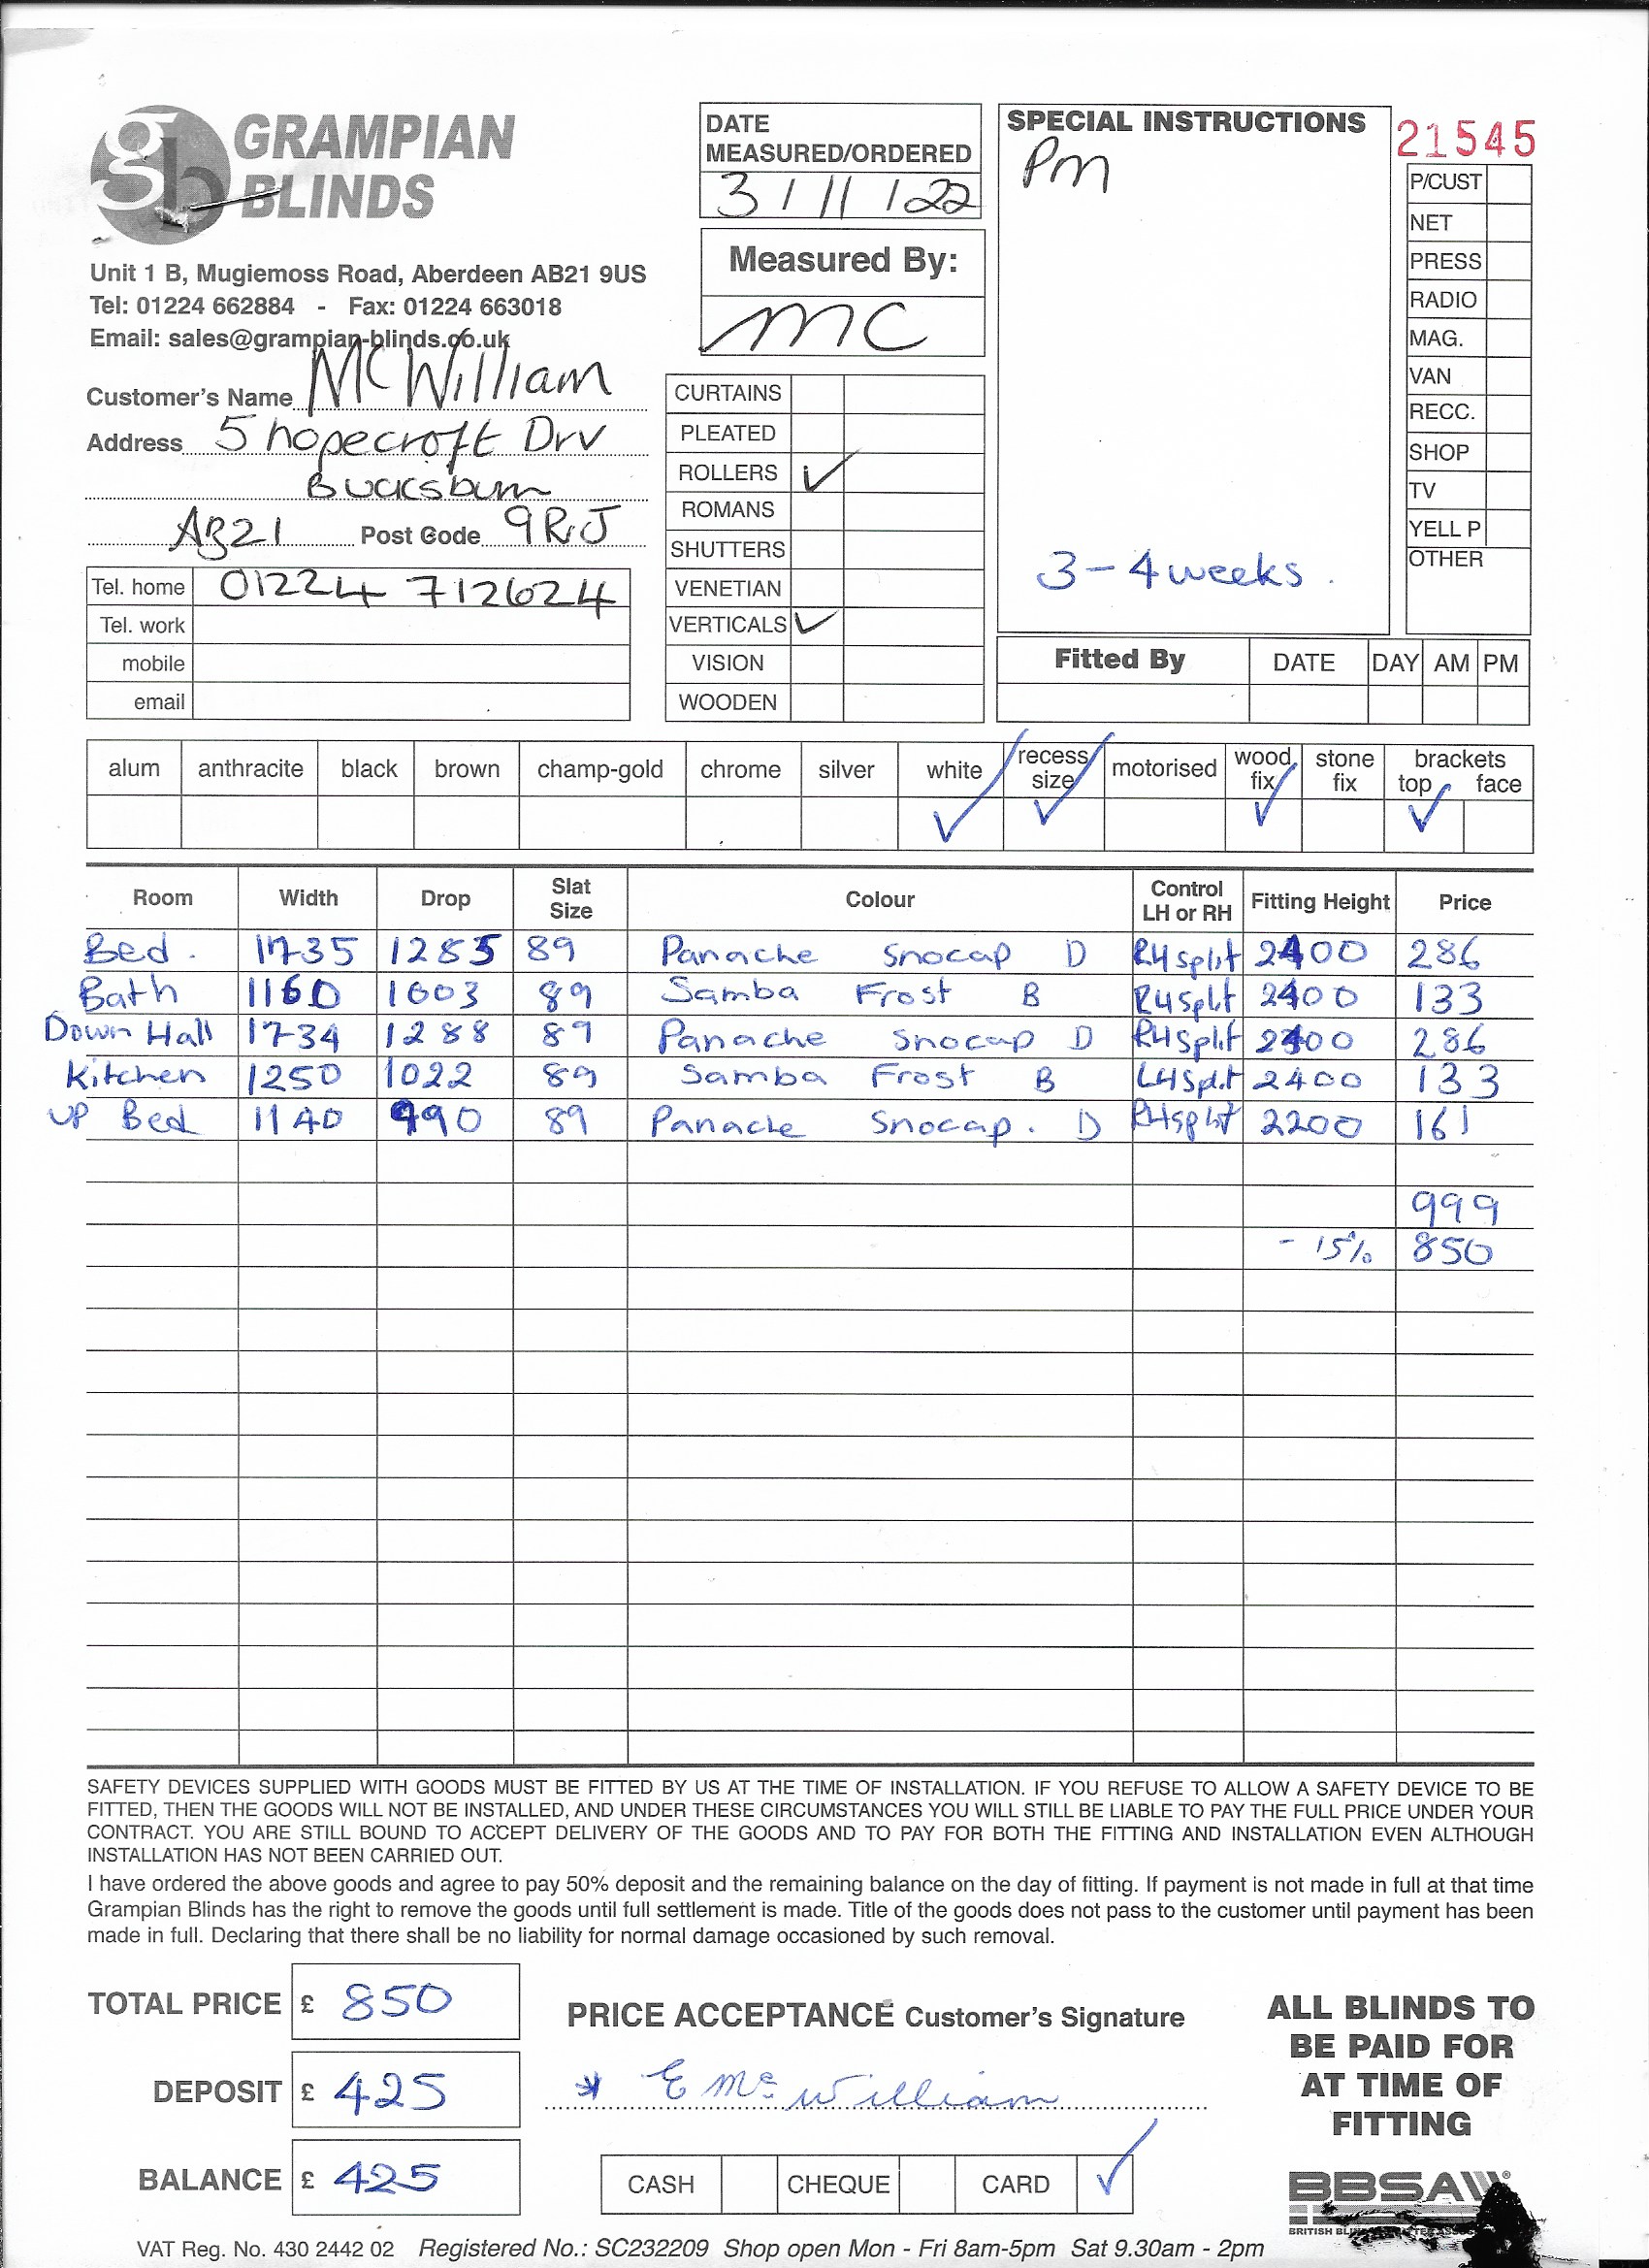 GRAMPIAN
BLINDS
Unit 1 B, Mugiemoss Road, Aberdeen AB21 9US
Tel: 01224 662884 - Fax: 01224 663018
Email: sales@grampian-blinds.co.uk
Customer's Name McWilliam
Address 5 hopecroft Drv
Bucksburn
AB21 Post Code 9RJ
Tel. home 01224 712624
Tel. work
mobile
email
DATE
MEASURED/ORDERED
3 / 11 / 22
Measured By:
MC
CURTAINS
PLEATED
ROLLERS ✓
ROMANS
SHUTTERS
VENETIAN
VERTICALS ✓
VISION
WOODEN
SPECIAL INSTRUCTIONS
Pm
3 - 4 weeks.
21545
P/CUST
NET
PRESS
RADIO
MAG.
VAN
RECC.
SHOP
TV
YELL P
OTHER
Fitted By DATE DAY AM PM
alum anthracite black brown champ-gold chrome silver white recess size motorised wood fix stone fix brackets top face
✓ ✓ ✓ ✓
Room Width Drop Slat Size Colour Control LH or RH Fitting Height Price
Bed. 1735 1285 89 Panache Snocap D RH split 2400 286
Bath 1160 1003 89 Samba Frost B RH Split 2400 133
Down Hall 1734 1288 89 Panache Snocap D RH Split 2400 286
Kitchen 1250 1022 89 Samba Frost B LH Split 2400 133
UP Bed 1140 990 89 Panache Snocap. D RH split 2200 161
999
- 15% 850
SAFETY DEVICES SUPPLIED WITH GOODS MUST BE FITTED BY US AT THE TIME OF INSTALLATION. IF YOU REFUSE TO ALLOW A SAFETY DEVICE TO BE
FITTED, THEN THE GOODS WILL NOT BE INSTALLED, AND UNDER THESE CIRCUMSTANCES YOU WILL STILL BE LIABLE TO PAY THE FULL PRICE UNDER YOUR
CONTRACT. YOU ARE STILL BOUND TO ACCEPT DELIVERY OF THE GOODS AND TO PAY FOR BOTH THE FITTING AND INSTALLATION EVEN ALTHOUGH
INSTALLATION HAS NOT BEEN CARRIED OUT.
I have ordered the above goods and agree to pay 50% deposit and the remaining balance on the day of fitting. If payment is not made in full at that time
Grampian Blinds has the right to remove the goods until full settlement is made. Title of the goods does not pass to the customer until payment has been
made in full. Declaring that there shall be no liability for normal damage occasioned by such removal.
TOTAL PRICE £ 850
DEPOSIT £ 425
BALANCE £ 425
PRICE ACCEPTANCE Customer's Signature
* E McWilliam
CASH CHEQUE CARD ✓
ALL BLINDS TO
BE PAID FOR
AT TIME OF
FITTING
BBSA
BRITISH
VAT Reg. No. 430 2442 02 Registered No.: SC232209 Shop open Mon - Fri 8am-5pm Sat 9.30am - 2pm